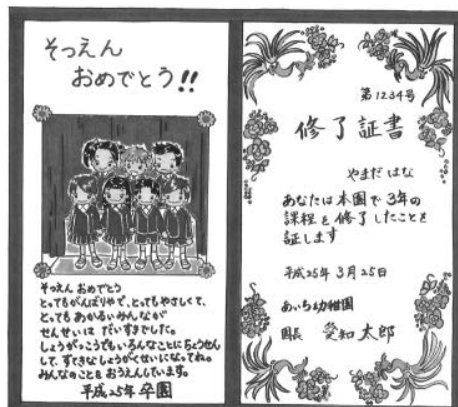 そつえん
おめでとう!!
そつえん おめでとう
とってもがんばりやで、とってもやさしくて、
とっても あかるい みんなが
せんせいは だいすきでした。
しょうがっこうでもいろんなことにちょうせん
して、すてきなしょうがくせいになってね。
みんなのことを おうえんしています。
平成25年 卒園
第1234号
修了証書
やまだ はな
あなたは本園で3年の
課程を修了したことを
証します
平成25年 3月25日
あいち幼稚園
園長 愛知太郎